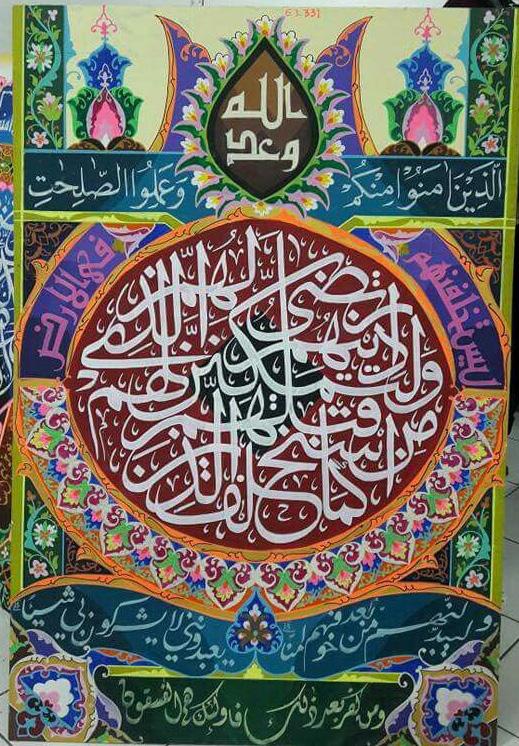 6.1.331
وعد الله
الَّذِينَ اٰمَنُوْا مِنْكُمْ وَعَمِلُوا الصّٰلِحٰتِ
ليستخلفنهم فى الارض
كما استخلف الذين من قبلهم وليمكنن لهم دينهم الذى ارتضى لهم
وليبدلنهم من بعد خوفهم امنا يعبدونني لا يشركون بي شيئا
ومن كفر بعد ذلك فاولئك هم الفسقون